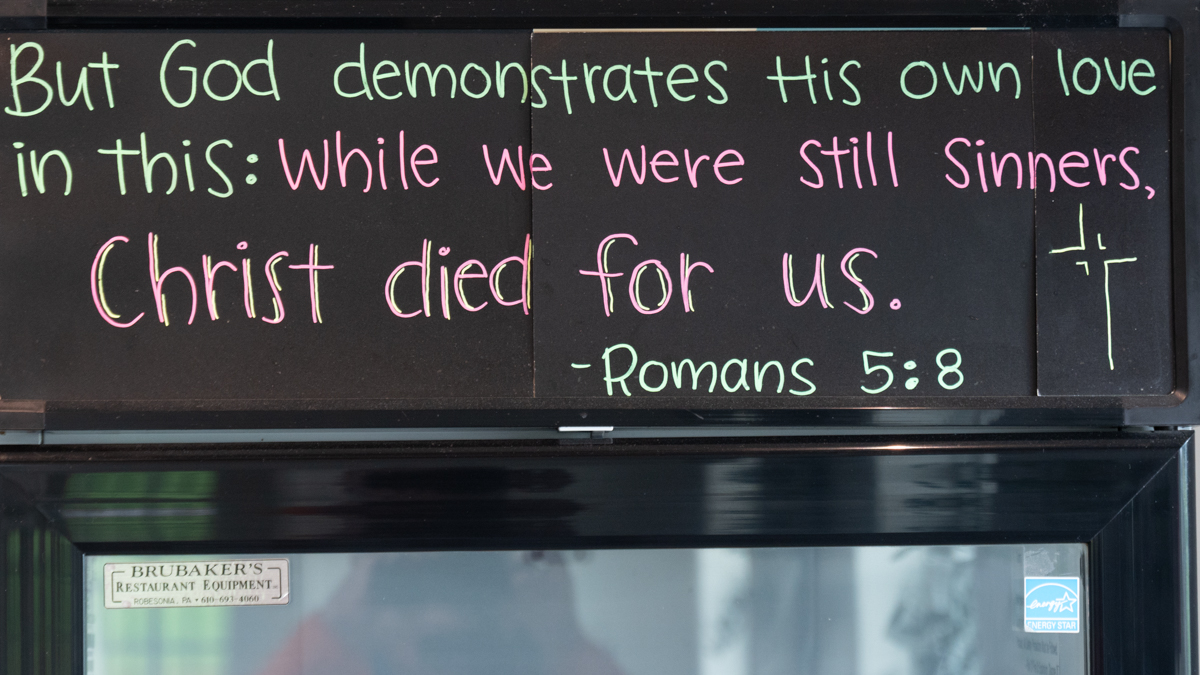 But God demonstrates His own love
in this: While we were still sinners,
Christ died for us.
-Romans 5:8
BRUBAKER'S
RESTAURANT EQUIPMENT
ROBESONIA, PA • 610-693-4060
energy
ENERGY STAR